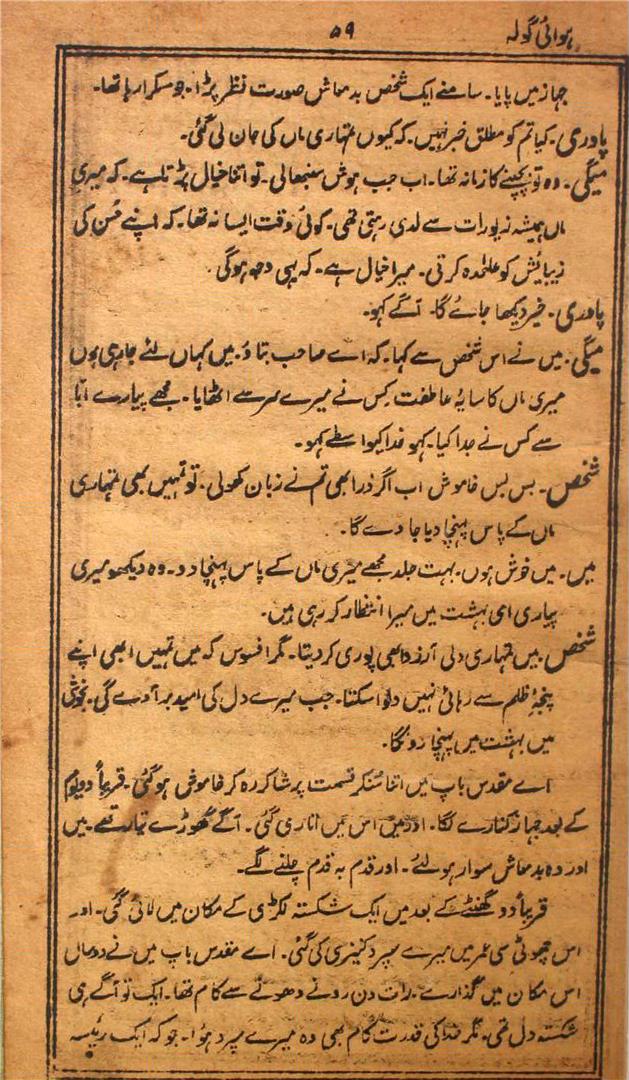 ہوائی گولہ ۵۹
جہاز میں پایا۔ سامنے ایک شخص بدمعاش صورت نظر پڑا۔ جو مسکرا رہا تھا۔
پادری۔ کیا تم کو مطلق خبر نہیں۔ کہ کیوں تمہاری ماں کی جان لی گئی۔
میگی۔ وہ تو بچپنے کا زمانہ تھا۔ اب جب ہوش سنبھالی۔ تو اتنا خیال پڑتا ہے۔ کہ میری
ماں ہمیشہ زیورات سے لدی رہتی تھی۔ کوئی وقت ایسا نہ تھا۔ کہ اپنے حسن کی
زیبائش کو علیٰحدہ کرتی۔ میرا خیال ہے۔ کہ یہی وجہ ہوگی۔
پادری۔ خیر دیکھا جائے گا۔ آگے کہو۔
میگی۔ میں نے اس شخص سے کہا۔ کہ اے صاحب بتاؤ۔ میں کہاں لئے جا رہی ہوں
میری ماں کا سایۂ عاطفت کس نے میرے سر سے اٹھایا۔ مجھے پیارے ابا
سے کس نے جدا کیا۔ کہو خدا کیواسطے کہو۔
شخص۔ بس بس خاموش اب اگر ذرا بھی تم نے زبان کھولی۔ تو تمہیں بھی تمہاری
ماں کے پاس پہنچا دیا جاوے گا۔
میں۔ میں خوش ہوں۔ بہت جلد مجھے میری ماں کے پاس پہنچا دو۔ وہ دیکھو میری
پیاری امی بہشت میں میرا انتظار کر رہی ہیں۔
شخص۔ میں تمہاری دلی آرزو ابھی پوری کر دیتا۔ مگر افسوس کہ میں تمہیں ابھی اپنے
پنجۂ ظلم سے رہائی نہیں دلوا سکتا۔ جب میرے دل کی امید بر آوے گی۔ بخوشی
میں بہشت میں پہنچا دونگا۔
اے مقدس باپ میں اتنا سنکر قسمت پر شاکر رہ کر خاموش ہو گئی۔ قریباً دو یوم
کے بعد جہاز کنارے لگا۔ اور میں اس میں اتاری گئی۔ آگے گھوڑے تیار تھے۔ میں
اور وہ بدمعاش سوار ہو لئے۔ اور قدم بہ قدم چلنے لگے۔
قریباً دو گھنٹے کے بعد میں ایک شکستہ لکڑی کے مکان میں لائی گئی۔ اور
اس چھوٹی سی عمر میں میرے سپرد کنیزی کی گئی۔ اے مقدس باپ میں نے دو ماں
اس مکان میں گذارے۔ رات دن رونے دھونے سے کام تھا۔ ایک تو آگے ہی
شکستہ دل تھی۔ مگر خدا کی قدرت کام بھی وہ میرے سپرد ہوا۔ جو کہ ایک رئیسہ